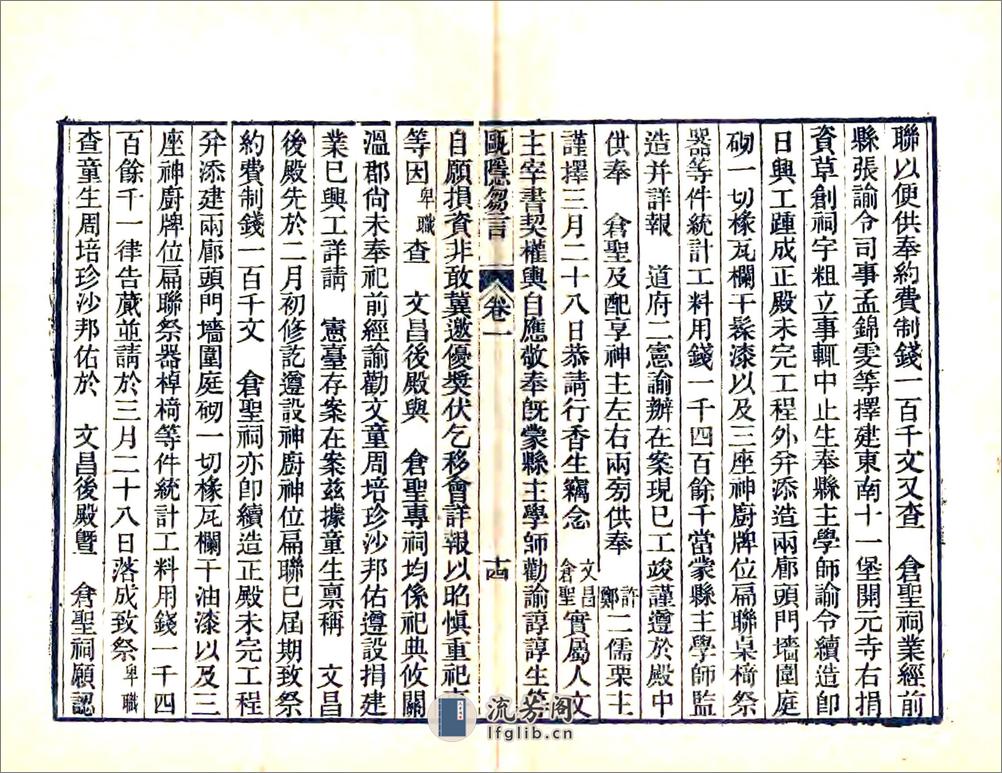 聯以便供奉約費制錢一百千文又查　倉聖祠業經前
縣張諭令司事孟錦雯等擇建東南十一堡開元寺右捐
資草創祠宇粗立事輒中止生奉縣主學師諭令續造卽
日興工踵成正殿未完工程外并添造兩廊頭門墻圍庭
砌一切椽瓦欄干髹漆以及三座神廚牌位扁聯桌椅祭
器等件統計工料用錢一千四百餘千當蒙縣主學師監
造并詳報　道府二憲諭辦在案現已工竣謹遵於殿中
供奉　倉聖及配享神主左右兩旁供奉　許鄭二儒栗主
謹擇三月二十八日恭請行香生竊念　文昌倉聖實屬人文
主宰書契權輿自應敬奉旣蒙縣主學師勸諭諄諄生等
甌隱芻言　卷一　十四
自願損資非敢冀邀優獎伏乞移會詳報以昭愼重祀
等因卑職查　文昌後殿與　倉聖專祠均係祀典攸關
溫郡尙未奉祀前經諭勸文童周培珍沙邦佑遵設捐建
業已興工詳請　憲臺存案在案茲據童生禀稱　文昌
後殿先於二月初修訖遵設神廚神位扁聯已屆期致祭
約費制錢一百千文　倉聖祠亦卽續造正殿未完工程
并添建兩廊頭門墻圍庭砌一切椽瓦欄干油漆以及三
座神廚牌位扁聯祭器棹椅等件統計工料用錢一千四
百餘千一律告蕆並請於三月二十八日落成致祭卑職
查童生周培珍沙邦佑於　文昌後殿曁　倉聖祠願認
流芳閣
lfglib.cn